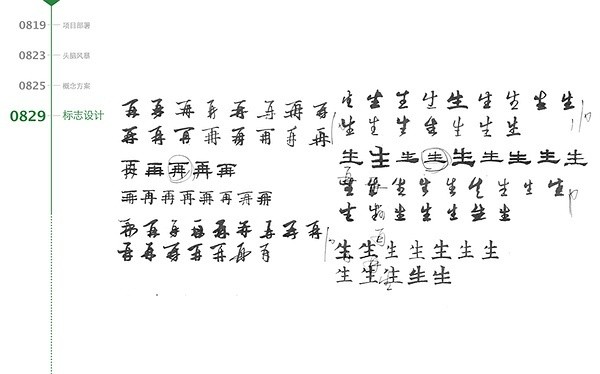 0819 项目部署
0823 头脑风暴
0825 概念方案
0829 标志设计
再再再再再再再再
再再再再再再再再
再再再再再
再再再再再再再再
再再再再再再再再再
再再再再再再再
生生生生生生生生生
生生生生生生生
生生生生生生生生生
生生生生生生生生生
生生生生生生生
生生生生生生生
生生生生生